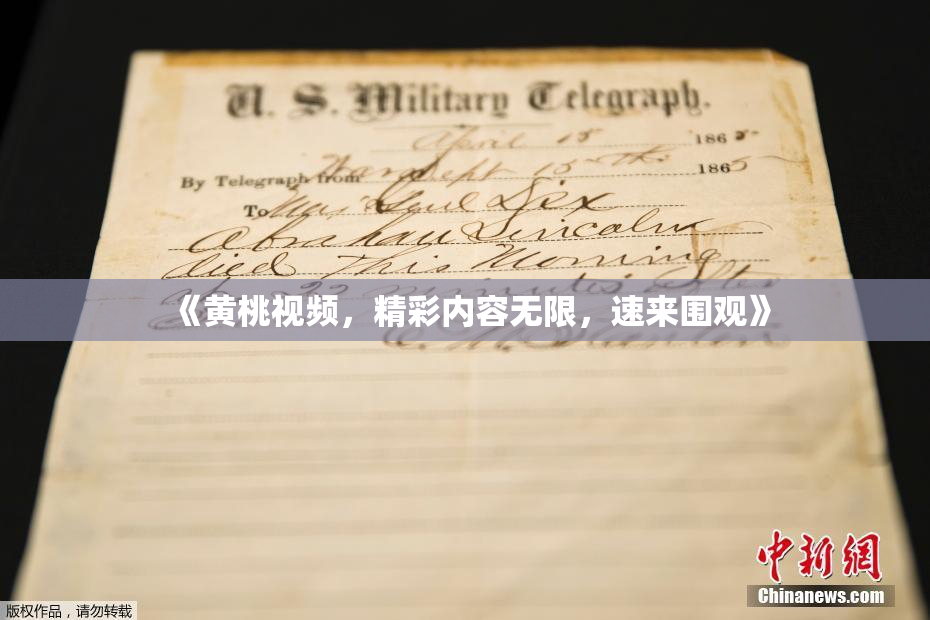 U. S. Military Telegraph.
April 15 1865
By Telegraph from War Dept 15th 1865
To Maj Genl Dix
Abraham Lincoln
died this morning
22 minutes after
《黄桃视频，精彩内容无限，速来围观》
E. M. Stanton
中新网
Chinanews.com
版权作品，请勿转载